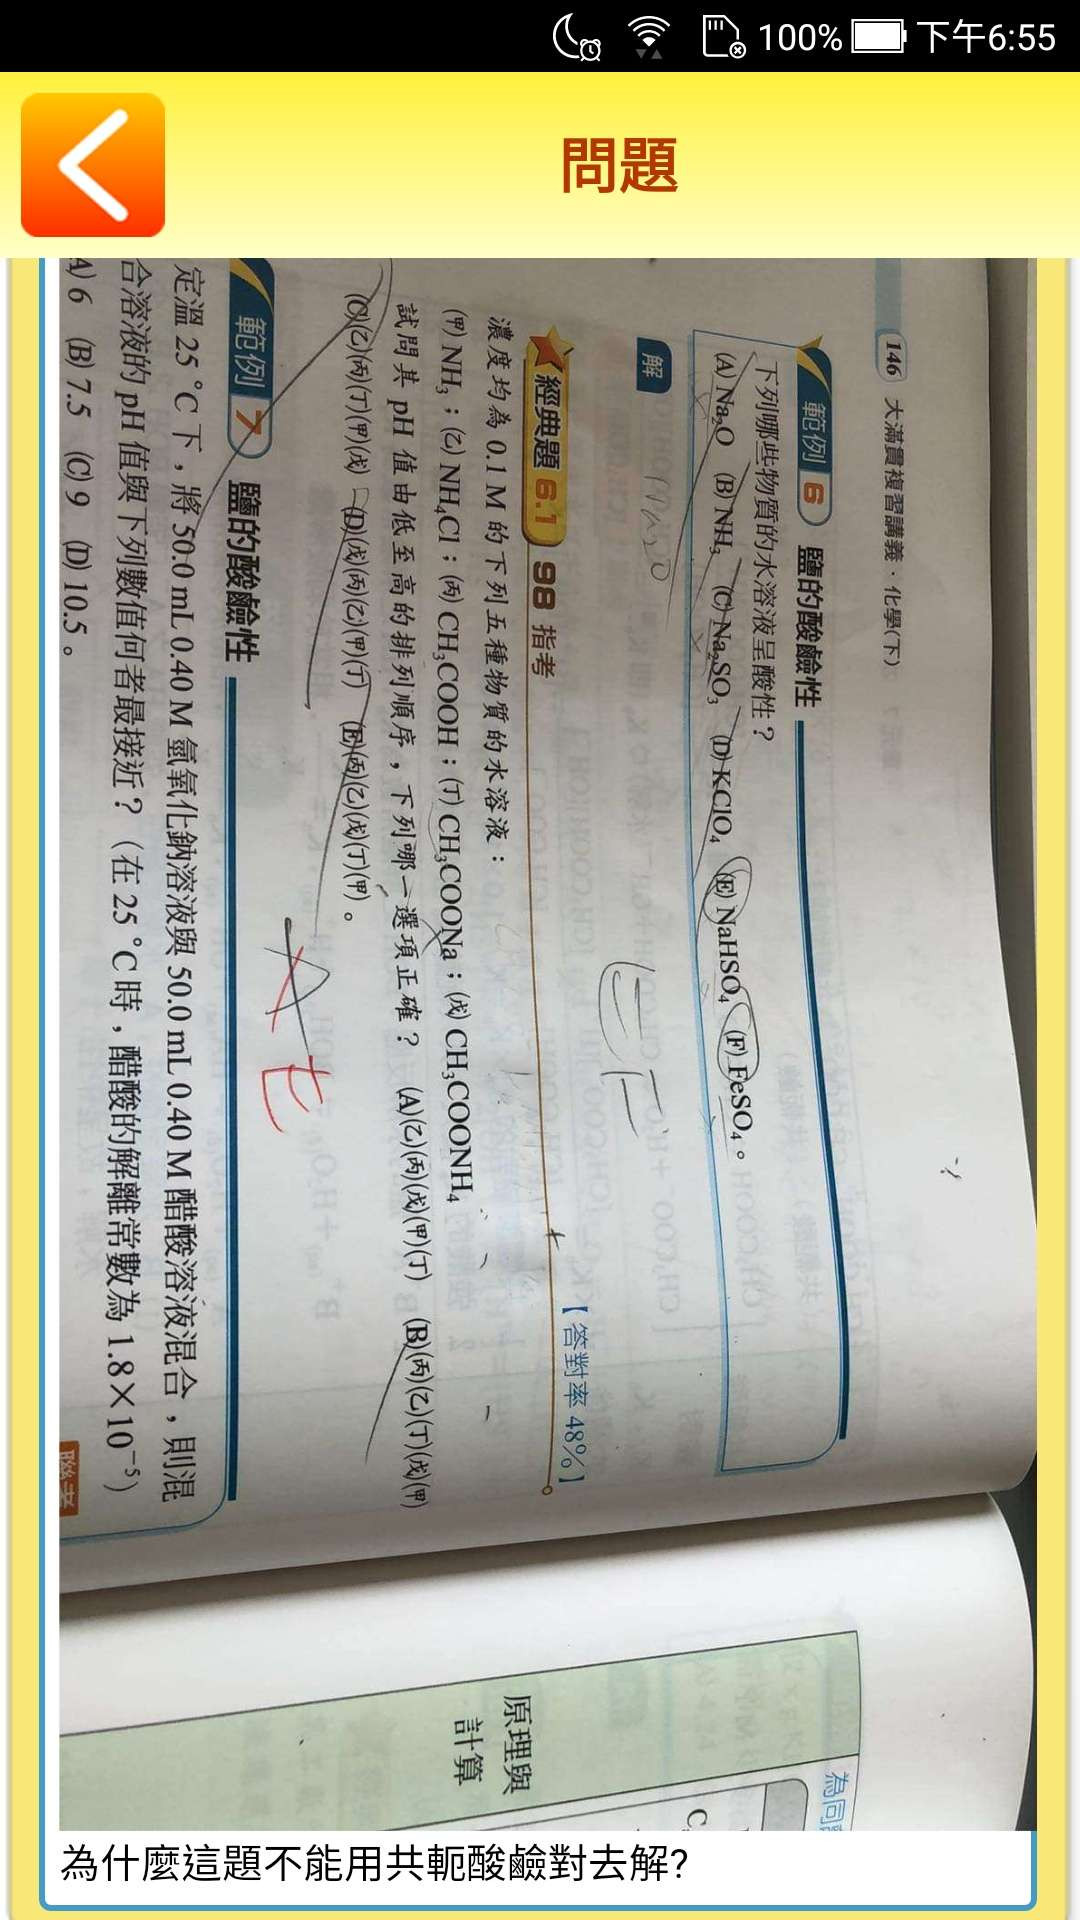 100% 下午6:55
問題
146 大滿貫複習講義．化學(下)
範例 6 鹽的酸鹼性
下列哪些物質的水溶液呈酸性？
(A) Na₂O (B) NH₃ (C) Na₂SO₃ (D) KClO₄ (E) NaHSO₄ (F) FeSO₄。
解
EF
經典題 6.1 98 指考
【答對率 48%】
濃度均為 0.1 M 的下列五種物質的水溶液：
(甲) NH₃；(乙) NH₄Cl；(丙) CH₃COOH；(丁) CH₃COONa；(戊) CH₃COONH₄
試問其 pH 值由低至高的排列順序，下列哪一選項正確？ (A)(乙)(丙)(戊)(甲)(丁) (B)(丙)(乙)(丁)(戊)(甲)
(C)(乙)(丙)(丁)(甲)(戊) (D)(戊)(丙)(乙)(甲)(丁) (E)(丙)(乙)(戊)(丁)(甲)。
A E
範例 7 鹽的酸鹼性
定溫 25 °C 下，將 50.0 mL 0.40 M 氫氧化鈉溶液與 50.0 mL 0.40 M 醋酸溶液混合，則混
合溶液的 pH 值與下列數值何者最接近？（在 25 °C 時，醋酸的解離常數為 1.8×10⁻⁵）
A) 6 (B) 7.5 (C) 9 (D) 10.5。
聯考
原理與
計算
為同
為什麼這題不能用共軛酸鹼對去解?